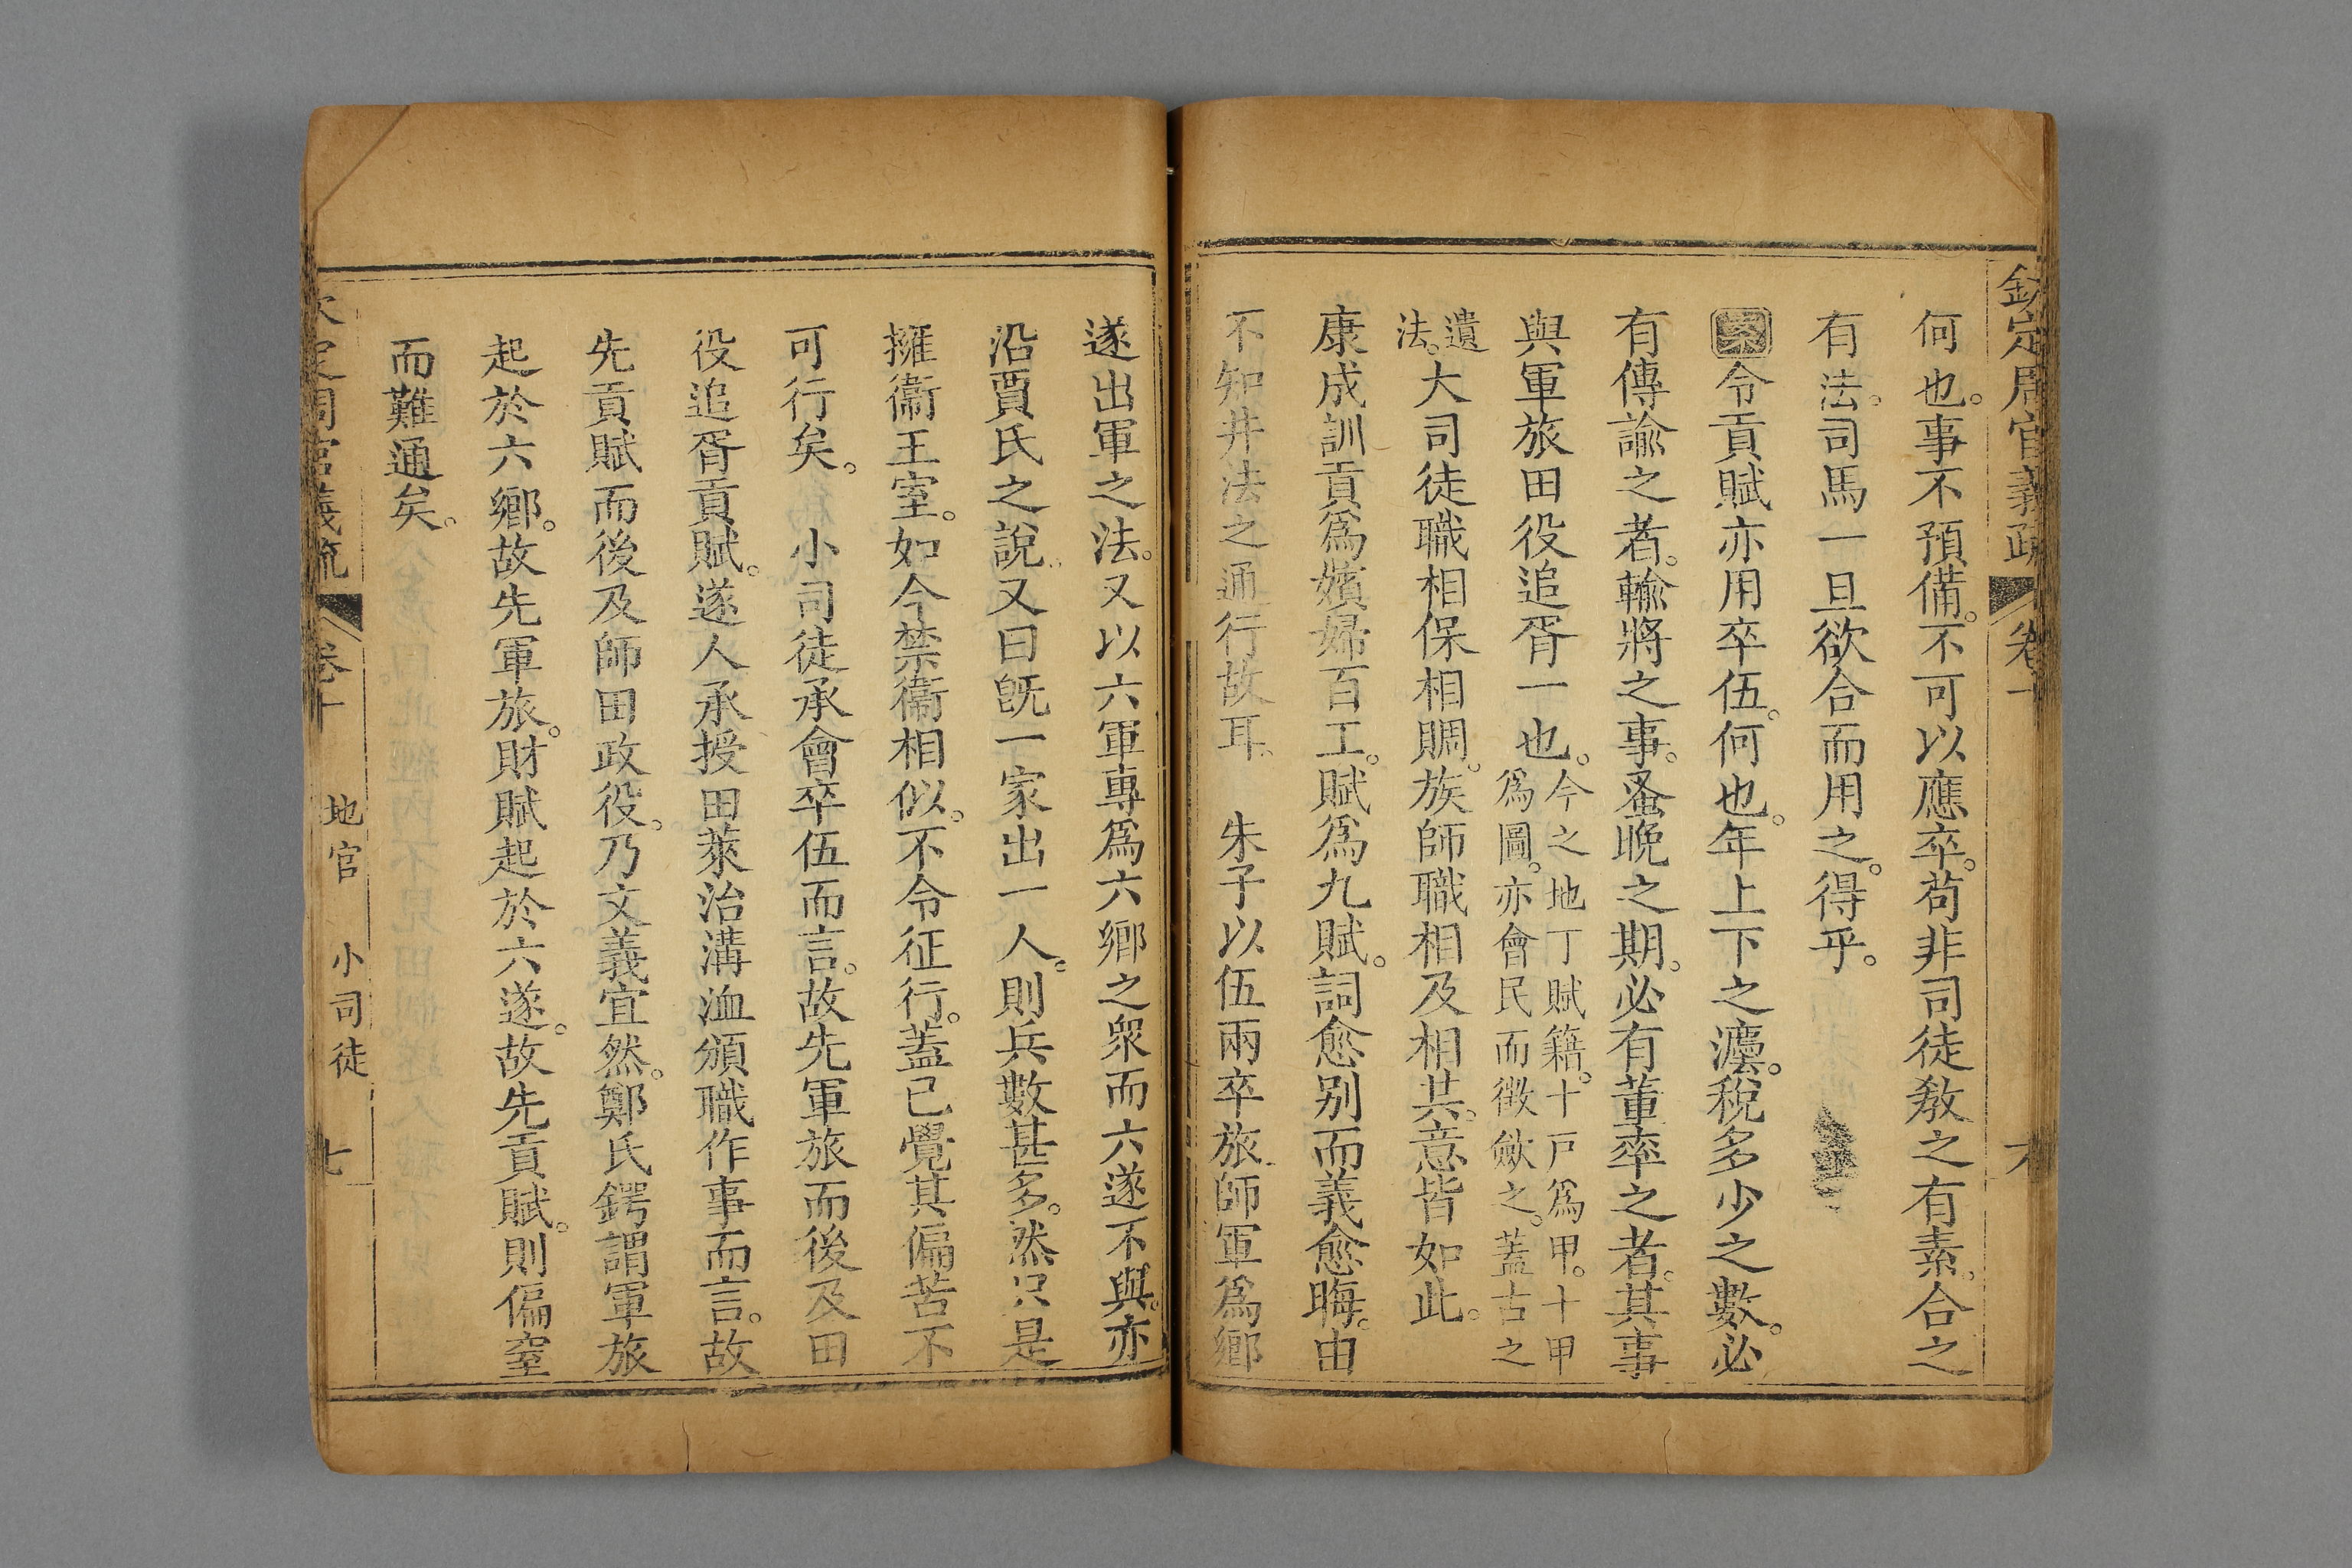 欽定周官義疏 卷十 六
何也。事不預備。不可以應卒。苟非司徒教之有素。合之
有法。司馬一旦欲合而用之。得乎。
案令貢賦亦用卒伍。何也。年上下之灋。稅多少之數。必
有傳諭之者。輸將之事。蚤晚之期。必有董率之者。其事
與軍旅田役追胥一也。今之地丁賦籍。十戸爲甲。十甲
爲圖。亦會民而徵斂之。蓋古之
遺
法。大司徒職相保相賙。族師職相及相共。意皆如此。
康成訓貢爲嬪婦百工。賦爲九賦。詞愈别而義愈晦。由
不知井法之通行故耳。 朱子以伍兩卒旅師軍爲鄉
遂出軍之法。又以六軍專爲六鄉之衆而六遂不與。亦
沿賈氏之說。又曰旣一家出一人。則兵數甚多。然只是
擁衞王室。如今禁衞相似。不令征行。蓋已覺其偏苦不
可行矣。 小司徒承會卒伍而言。故先軍旅而後及田
役追胥貢賦。遂人承授田萊治溝洫頒職作事而言。故
先貢賦而後及師田政役。乃文義宜然。鄭氏鍔謂軍旅
起於六鄉。故先軍旅。財賦起於六遂。故先貢賦。則偏窒
而難通矣。
欽定周官義疏 卷十 地官 小司徒 七